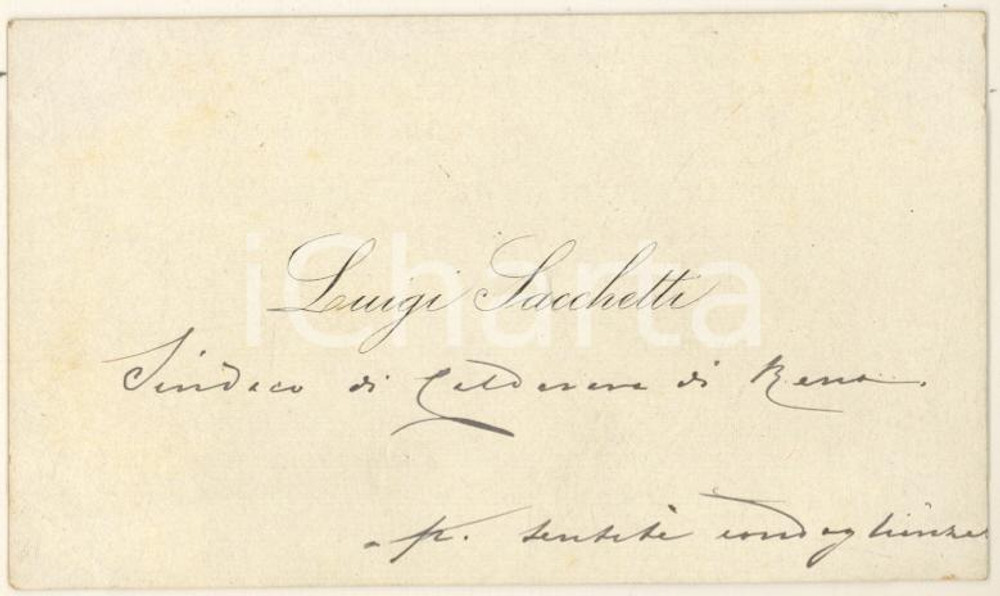 Luigi Sacchetti
Sindaco di Calderara di Reno.
p. sentite condoglianze
iCharta